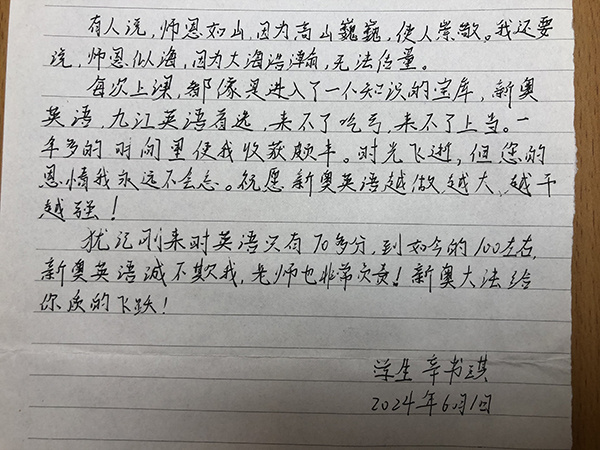 有人说，师恩如山，因为高山巍巍，使人崇敬。我还要
说，师恩似海，因为大海浩瀚，无法估量。
每次上课，都像是进入了一个知识的宝库，新奥
英语，九江英语首选，来不了吃亏，来不了上当。一
年多的时间里使我收获颇丰。时光飞逝，但您的
恩情我永远不会忘。祝愿新奥英语越做越大、越干
越强！
犹记刚来时英语只有70多分，到如今的100左右，
新奥英语诚不欺我，老师也非常负责！新奥大法给
你质的飞跃！
学生 辛书琪
2024年6月1日